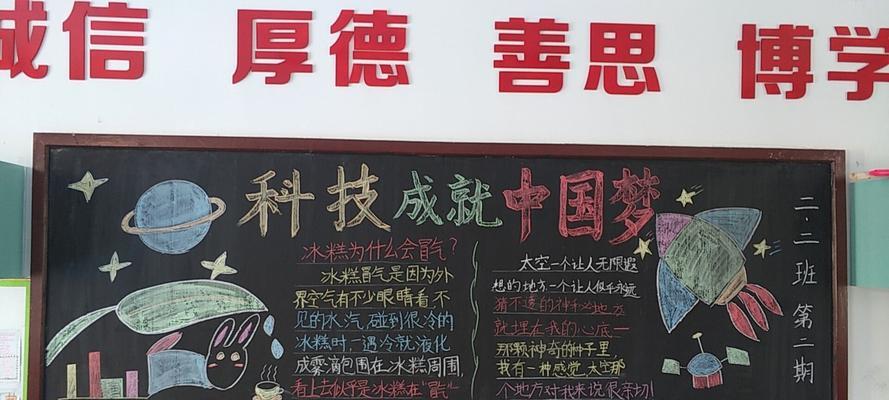 诚信 厚德 善思 博学
科技成就中国梦
冰糕为什么会冒气?
冰糕冒气是因为外
界空气有不少眼睛看不
见的水汽,碰到很冷的
冰糕时,一遇冷就液化
成雾滴包围在冰糕周围,
看上去似乎是冰糕在"冒气"
太空一个让人无限遐
想的地方一个让人似乎永远
猜不透的神秘地方
就埋在我的心底一
那颗神奇的种子里
我有一种感觉,太空那
个地方对我来说很亲切
二.二班第二期